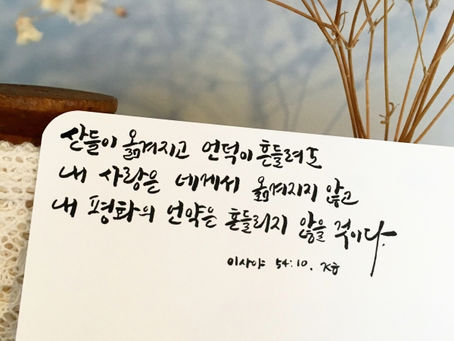 산들이 옮겨지고 언덕이 흔들려도
내 사랑은 네게서 옮겨지지 않고
내 평화의 언약은 흔들리지 않을 것이다.
이사야 54:10.